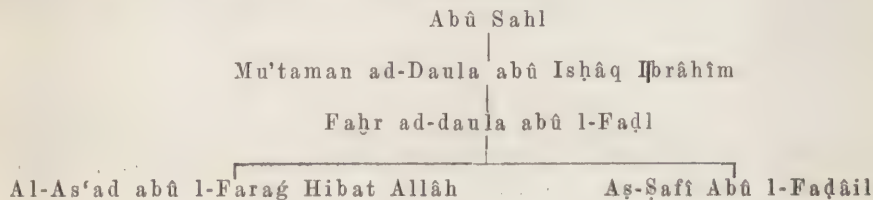 Abû Sahl
Mu'taman ad-Daula abû Isḥâq Ibrâhîm
Faḫr ad-daula abû l-Faḍl
Al-Asʿad abû l-Faraǵ Hibat Allâh Aṣ-Ṣafî Abû l-Faḍâil